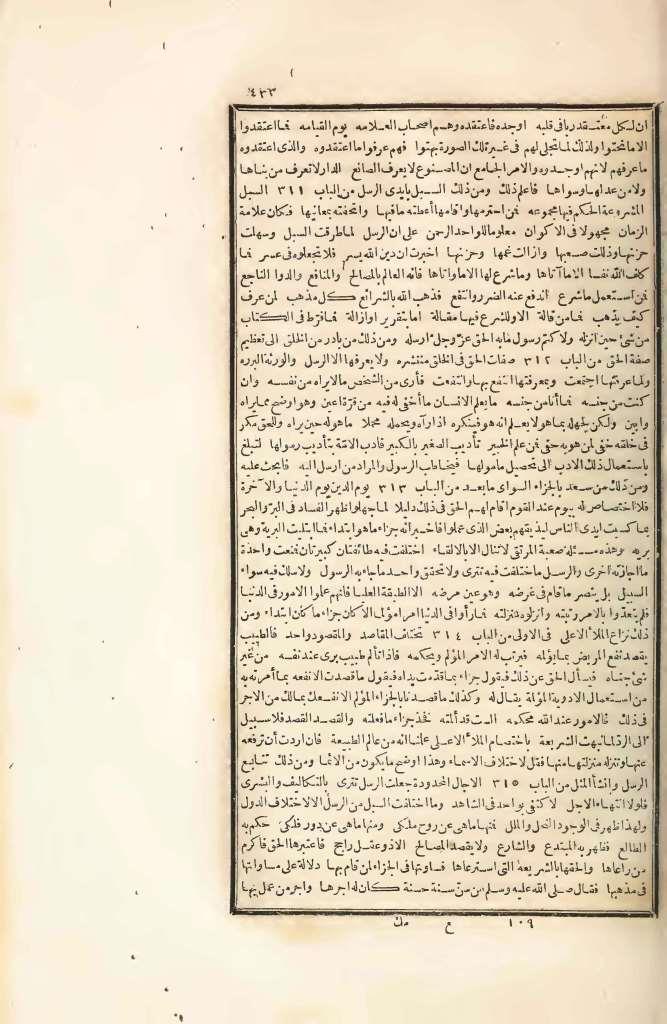 ٤٣٣
ان لكل معتقد ربا فى قلبه اوجده فاعتقده وهم اصحاب العلامه يوم القيامه فما اعتقدوا
الا ما نحتوا ولذلك لما تجلى لهم فى غير تلك الصورة بهتوا فهم عرفوا ما اعتقدوه والذى اعتقدوه
ما عرفهم لانهم اوجدوه والامر الجامع ان المصنوع لا يعرف الصانع الدار لا تعرف من بناها
ولا من عدلها وسواها فاعلم ذلك ومن ذلك السبل بايدى الرسل من الباب ٣١١ السبل
المشروعة الحكم فيها مجموعه فمن احترمها واقامها أعطته ما فيها واتحفته بمعانيها فكان علامة
الزمان مجهولا فى الاكوان معلوما للواحد الرحمن على ان الرسل لما طرقت السبل وسهلت
حزنها وذللت صعبها وازالت غمها وحزنها اخبرت ان دين الله يسر فلا تجعلوه فى عسر فما
كلف الله نفسا الا ما آتاها وما شرع لها الا ما واتاها فانه العالم بالمصالح والمنافع والدوا الناجع
فمن استعمل ما شرع اندفع عنه الضرر وانتفع فذهب الله بالشرائع كل مذهب لمن عرف
كيف يذهب فما من قالة الا وللشرع فيها مقالة اما بتقرير او ازالة فما فرط فى الكتاب
من شئ حين انزله ولا كتم رسول مابه الحق عز وجل ارسله ومن ذلك من بادر من الخلق الى تعظيم
صفة الحق من الباب ٣١٢ صفات الحق فى الخلق منتشره ولا يعرفها الا الرسل والورثة البرره
ولما عرفتها اجتمعت وبمعرفتها انتفع بها وانتفعت فأرى من الشخص ما لا يراه من نفسه وان
كنت من جنسه فما أنا من جنسه ما يعلم الانسان ما أخفى له فيه من قرة اعين وهو اوضح مما يراه
وابين ولكن لجهله بما هو لا يعلم انه هو فينكره اذا رآه ويحمله محملا ما هو له حين يراه وللحق مكر
فى خلقه خفى لمن هو به حفى فمن علم الخبير تأديب الصغير بالكبير فادب الامّة بتأديب رسولها لتبلغ
باستعمال ذلك الادب الى تحصيل مأمولها فيخاطب الرسول والمراد من ارسل اليه فابحث عليه
ومن ذلك من سعد بالجزاء السواى ما بعد من الباب ٣١٣ يوم الدين يوم الدنيا والآخرة
فلا اختصاص له بيوم عند القوم اقام لهم الحق فى ذلك دليلا لما جهلوا ظهر الفساد فى البر والبحر
بما كسبت ايدى الناس ليذيقهم بعض الذى عملوا فاخبر انه جزاء ما هو ابتداء فما ابتليت البرية وهى
بريه وهذه مسئلة صعبة المرتقى لا تنال الا بالالقاء اختلفت فيه طائفتان كبيرتان فمنعت واحدة
ما اجازته اخرى والرسل ما اختلفت فيه تترى ولا تحقق واحد ما جاء به الرسول ولا سلك فيه سواء
السبيل بل ينصر ما قام فى غرضه وهو عين مرضه الا الطبقة العليا فانهم علموا الامور فى الدنيا
فلم يتعدّوا بالامر رتبته وانزلوه منزلته فما رأوا فى الدنيا امرا مؤلما الا كان جزاء ما كان ابتداء ومن
ذلك نزاع الملأ الاعلى فى الاولى من الباب ٣١٤ تختلف المقاصد والمقصود واحد فالطبيب
يقصد نفع المريض بما يؤلمه فيرتب له الامر المؤلم ويحكمه فاذا تألم طبيب يرى عند نفسه من تغير
شئ جناه فيسأل الحق عن ذلك فيقول جزاء بما قدمت يداه فيقول ما قصدت الا نفعه بما أمرته به
من استعمال الادوية المؤلمة يقال له وكذلك ما قصدنا بالجزاء المؤلم الا نفعك بمالك من الاجر
فى ذلك فالامور عند الله محكمه الست قد ألمته فخذ جزاء ما فعلته والقصد القصد فلا سبيل
الى الرد لما نبهت الشريعة باختصام الملأ الاعلى علمنا انه من عالم الطبيعة فان اردت ان ترفعه
عنها وتنزله منزلتها منها فقل لاختلاف الاسماء وهذا اوضح ما يكون من الانما ومن ذلك تتابع
الرسل وانشأ المثل من الباب ٣١٥ الاجال المحدودة جعلت الرسل تترى بالتكاليف والبشرى
فلولا انتهاء الاجل لاكتفى بواحد فى الشاهد وما اختلفت السبل من الرسل الا لاختلاف الدول
ولهذا ظهر فى الوجود النحل والملل فمنها ما هى عن روح ملكى ومنها ما هى عن دور فلكى حكم به
الطالع فظهر به المبتدع والشارع ولا يقصد المصالح الا ذو عقل راجح فاعتبرها الحق فاكرم
من راعاها والحقها بالشريعة التى استرعاها فساوتها فى الجزاء لمن قام بها دلالة على مساواتها
فى مذهبها فقال صلى الله عليه وسلم من سنّ سنة حسنة كان له اجرها واجر من عمل بها
١٠٩ ع مك